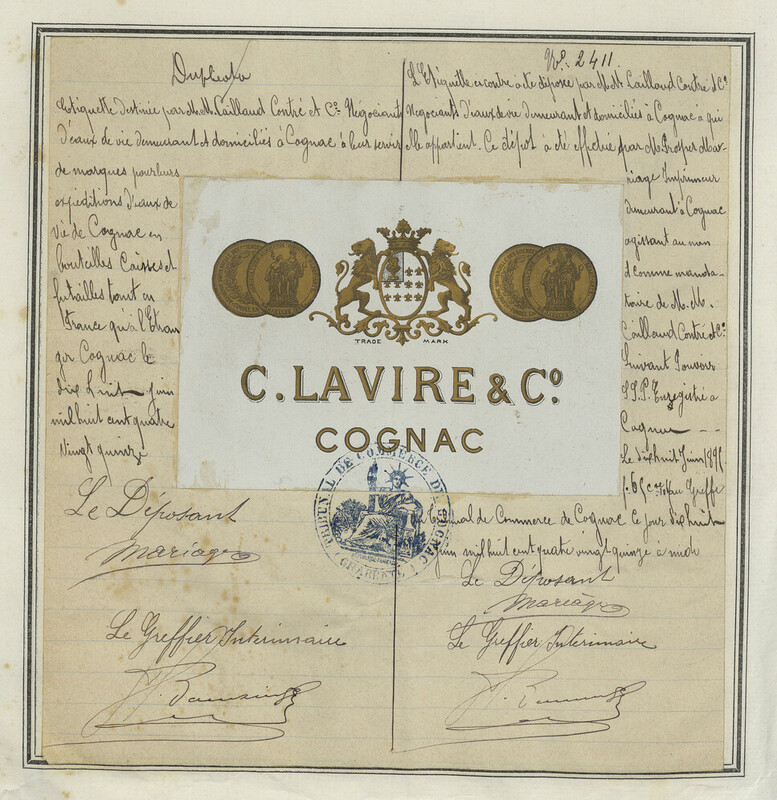 Duplicata
Etiquette destinée par M.M. Caillaud Contré et Cie Négociants
d'eaux de vie demeurant et domiciliés à Cognac à leur servir
de marques pour leurs
expéditions d'eaux de
vie de Cognac en
bouteilles Caisses et
futailles tout en
France qu'à l'Etran
ger Cognac le
dix huit juin
mil huit cent quatre
vingt quinze
Le Déposant
Mariage
Le Greffier Interimaire
No. 2411
L'Etiquette ci contre a été déposée par M.M. Caillaud Contré & Cie
Négociants d'eaux de vie demeurant et domiciliés à Cognac à qui
elle appartient. Ce dépôt a été effectué par M. Prosper Ma-
riage Imprimeur
demeurant à Cognac
agissant au nom
et comme manda-
taire de M.M.
Caillaud Contré et Cie
Suivant Pouvoir
S.S.P. Enregistré à
Cognac - - -
Le dix huit Juin
au Greffe
Tribunal de Commerce de Cognac ce jour dix huit
juin mil huit cent quatre vingt quinze à midi
Le Déposant
Mariage
Le Greffier Interimaire
TRADE MARK
C. LAVIRE & Co.
COGNAC
TRIBUNAL DE COMMERCE DE COGNAC